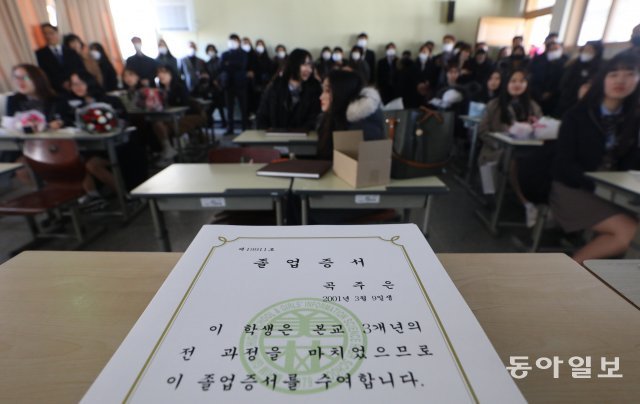 제 19911호
졸업증서
곡주은
2001년 3월 9일생
이 학생은 본교 3개년의
전 과정을 마치었으므로
이 졸업증서를 수여합니다.
동아일보